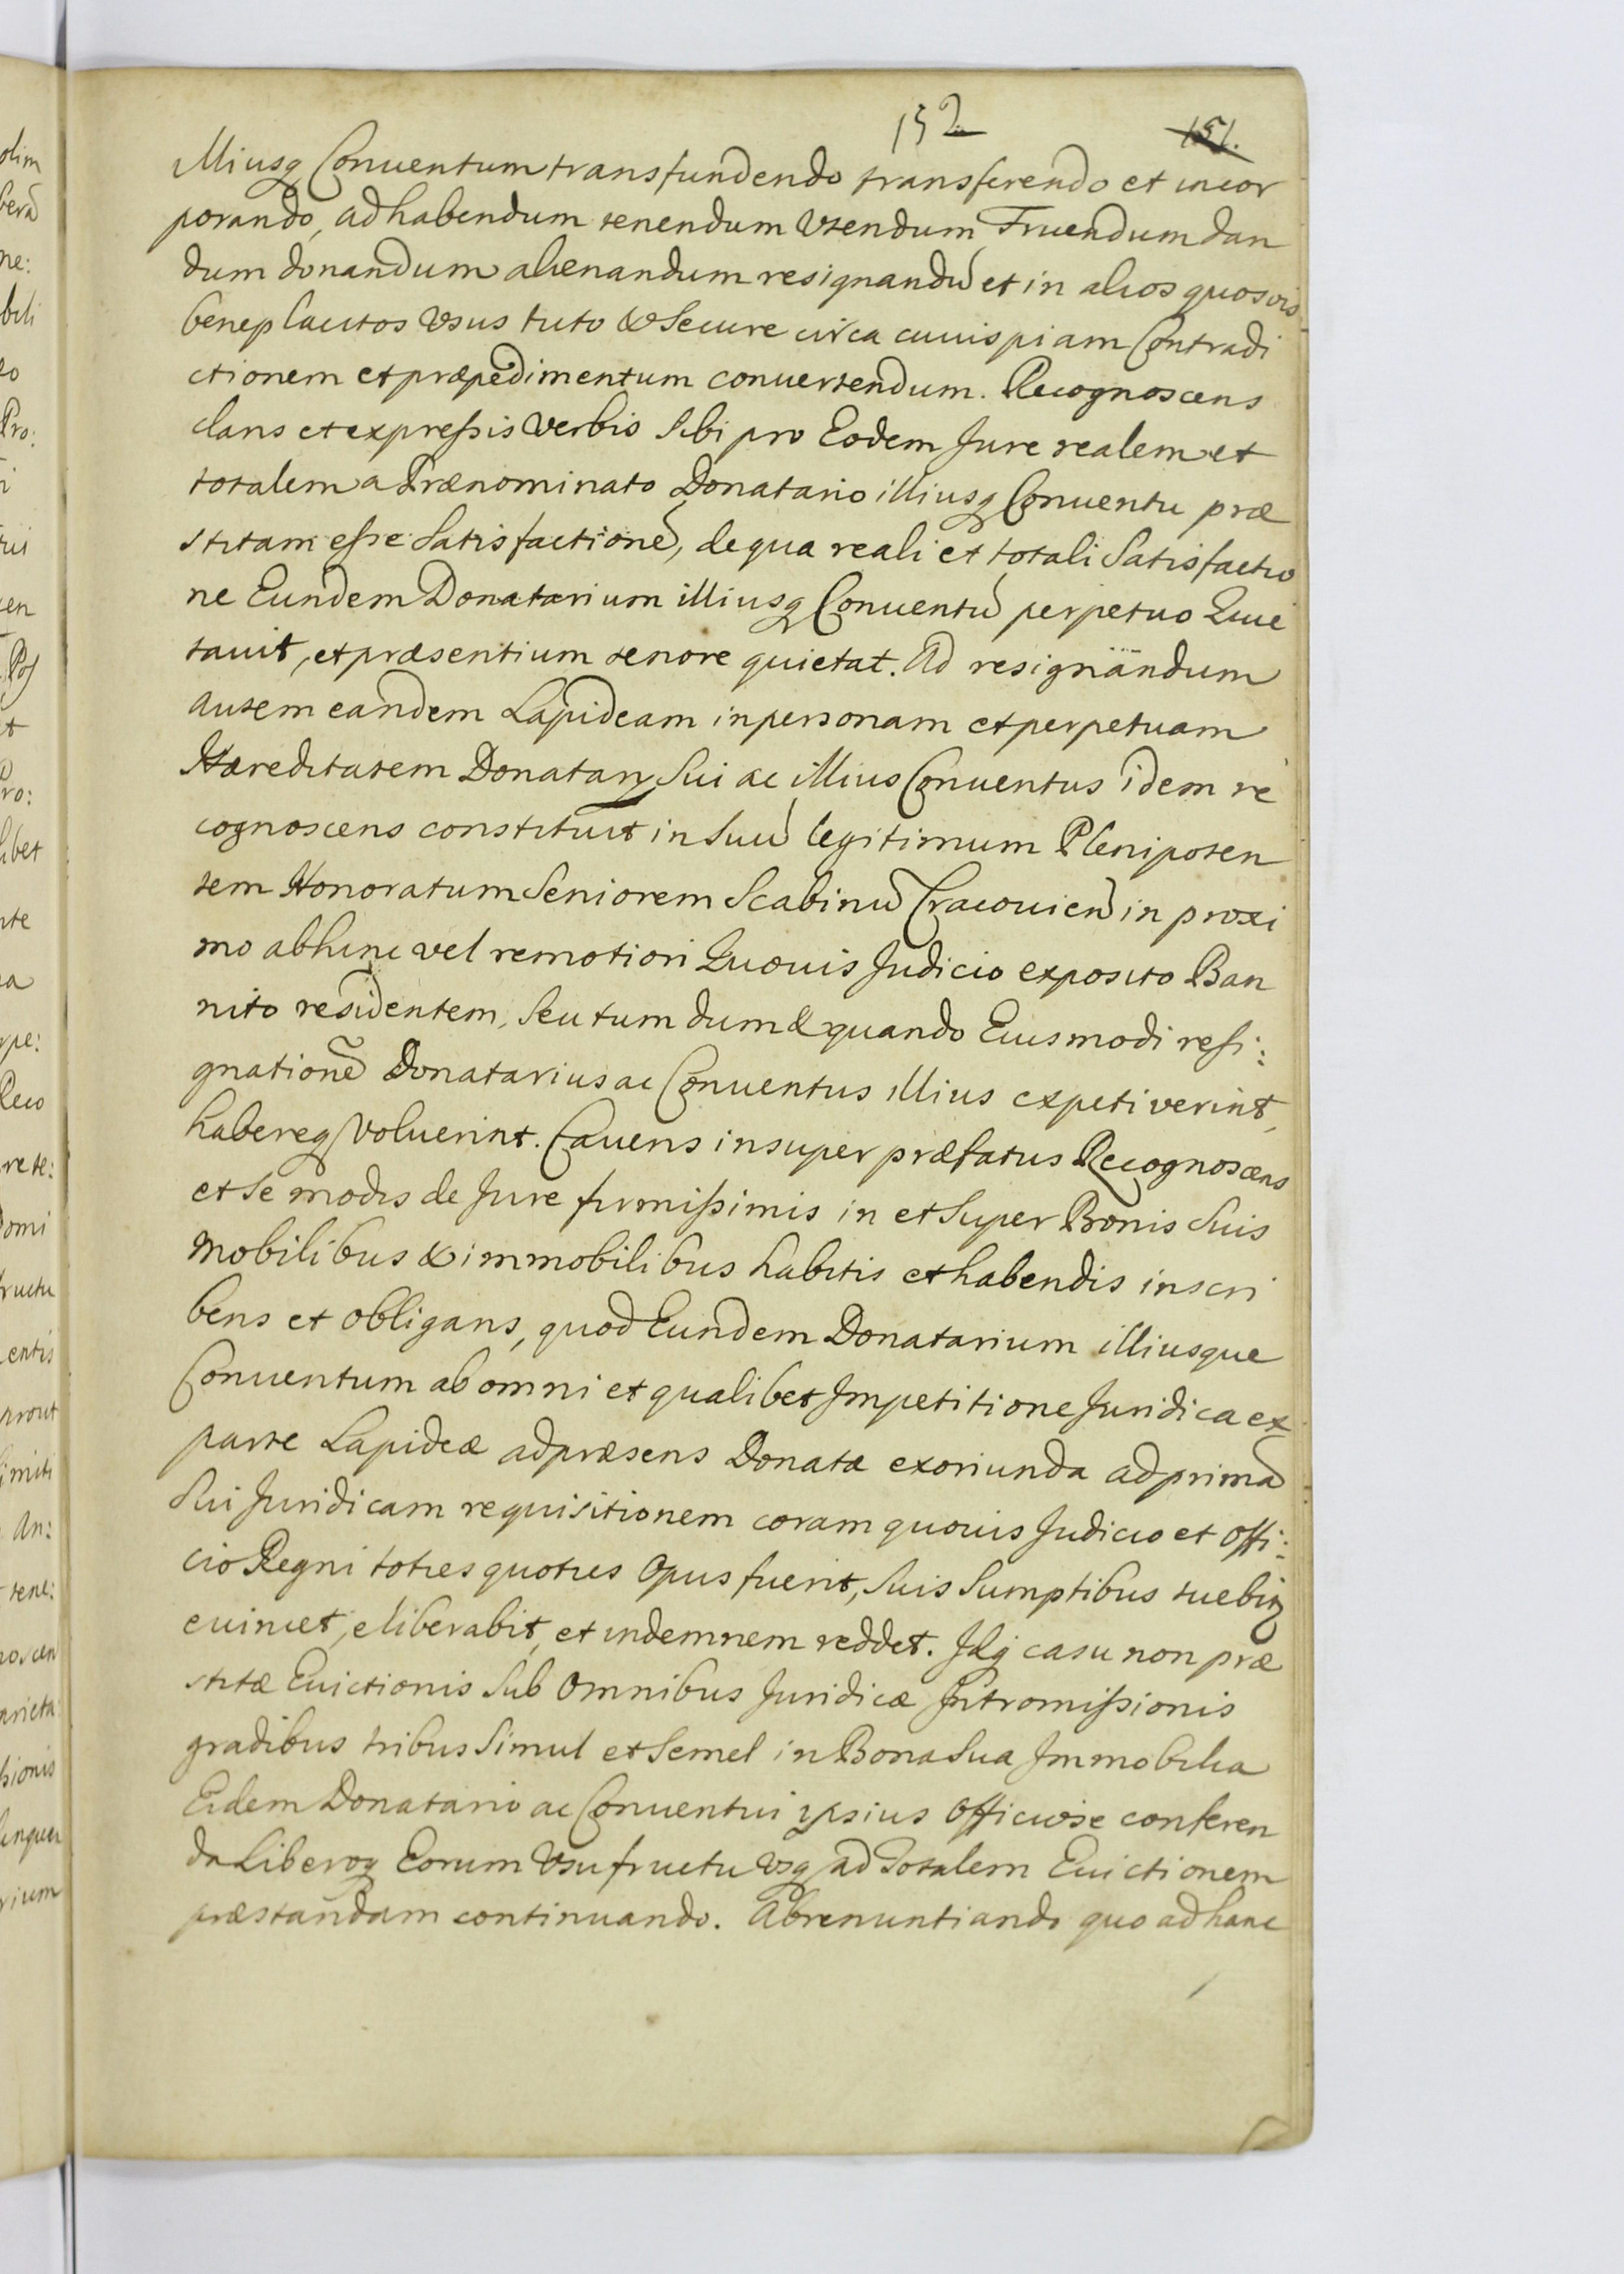 152
151.
Illiusq Conuentum transfundendo transferendo et incor
porando, ad habendum tenendum Vtendum Fruendum dan
dum donandum alienandum resignandũ et in alios quosvis
beneplacitos Vsus tuto & Secure circa cuiuispiam Contradi
ctionem et præpedimentum conuertendum. Recognoscens
claris et expreßis Verbis Sibi pro Eodem Jure realem et
totalem a Prænominato Donatario illiusq Conuentu præ
stitam eße Satisfactionẽ, de qua reali et totali Satisfactio
ne Eundem Donatarium illiusq Conuentũ perpetuo Quie
tauit, et præsentium tenore quietat. Ad resignandum
autem eandem Lapideam in personam et perpetuam
Hæreditatem Donatarÿ Sui ac illius Conuentus idem re
cognoscens constituit in Suũ legitimum Plenipoten
tem Honoratum Seniorem Scabinũ Cracouieñ in proxi
mo abhinc vel remotiori Quouis Judicio exposito Ban
nito residentem, Seu tum dum & quando Eiusmodi resi:
gnationẽ Donatarius ac Conuentus illius expetiverint,
habereq Voluerint. Cauens insuper præfatus Recognoscens
et Se modis de Jure firmißimis in et Super Bonis Suis
Mobilibus & immobilibus habitis et habendis inscri
bens et obligans, quod Eundem Donatarium illiusque
Conuentum ab omni et qualibet Impetitione Juridica ex
parte Lapideæ ad præsens Donatæ exoriunda ad primã
Sui Juridicam requisitionem coram quouis Judicio et Offi:
cio Regni toties quoties Opus fuerit, Suis Sumptibus tuebitz
euincet, eliberabit, et indemnem reddet. Idq casu non præ
stitæ Euictionis Sub Omnibus Juridicæ Intromißionis
gradibus tribus Simul et Semel in Bona Sua Immobilia
Eidem Donatario ac Conuentui ipsius Officiose conferen
da Liberoq Eorum Vsufructu Vsq ad Totalem Euictionem
præstandam continuando. Abrenuntiando quo ad hanc